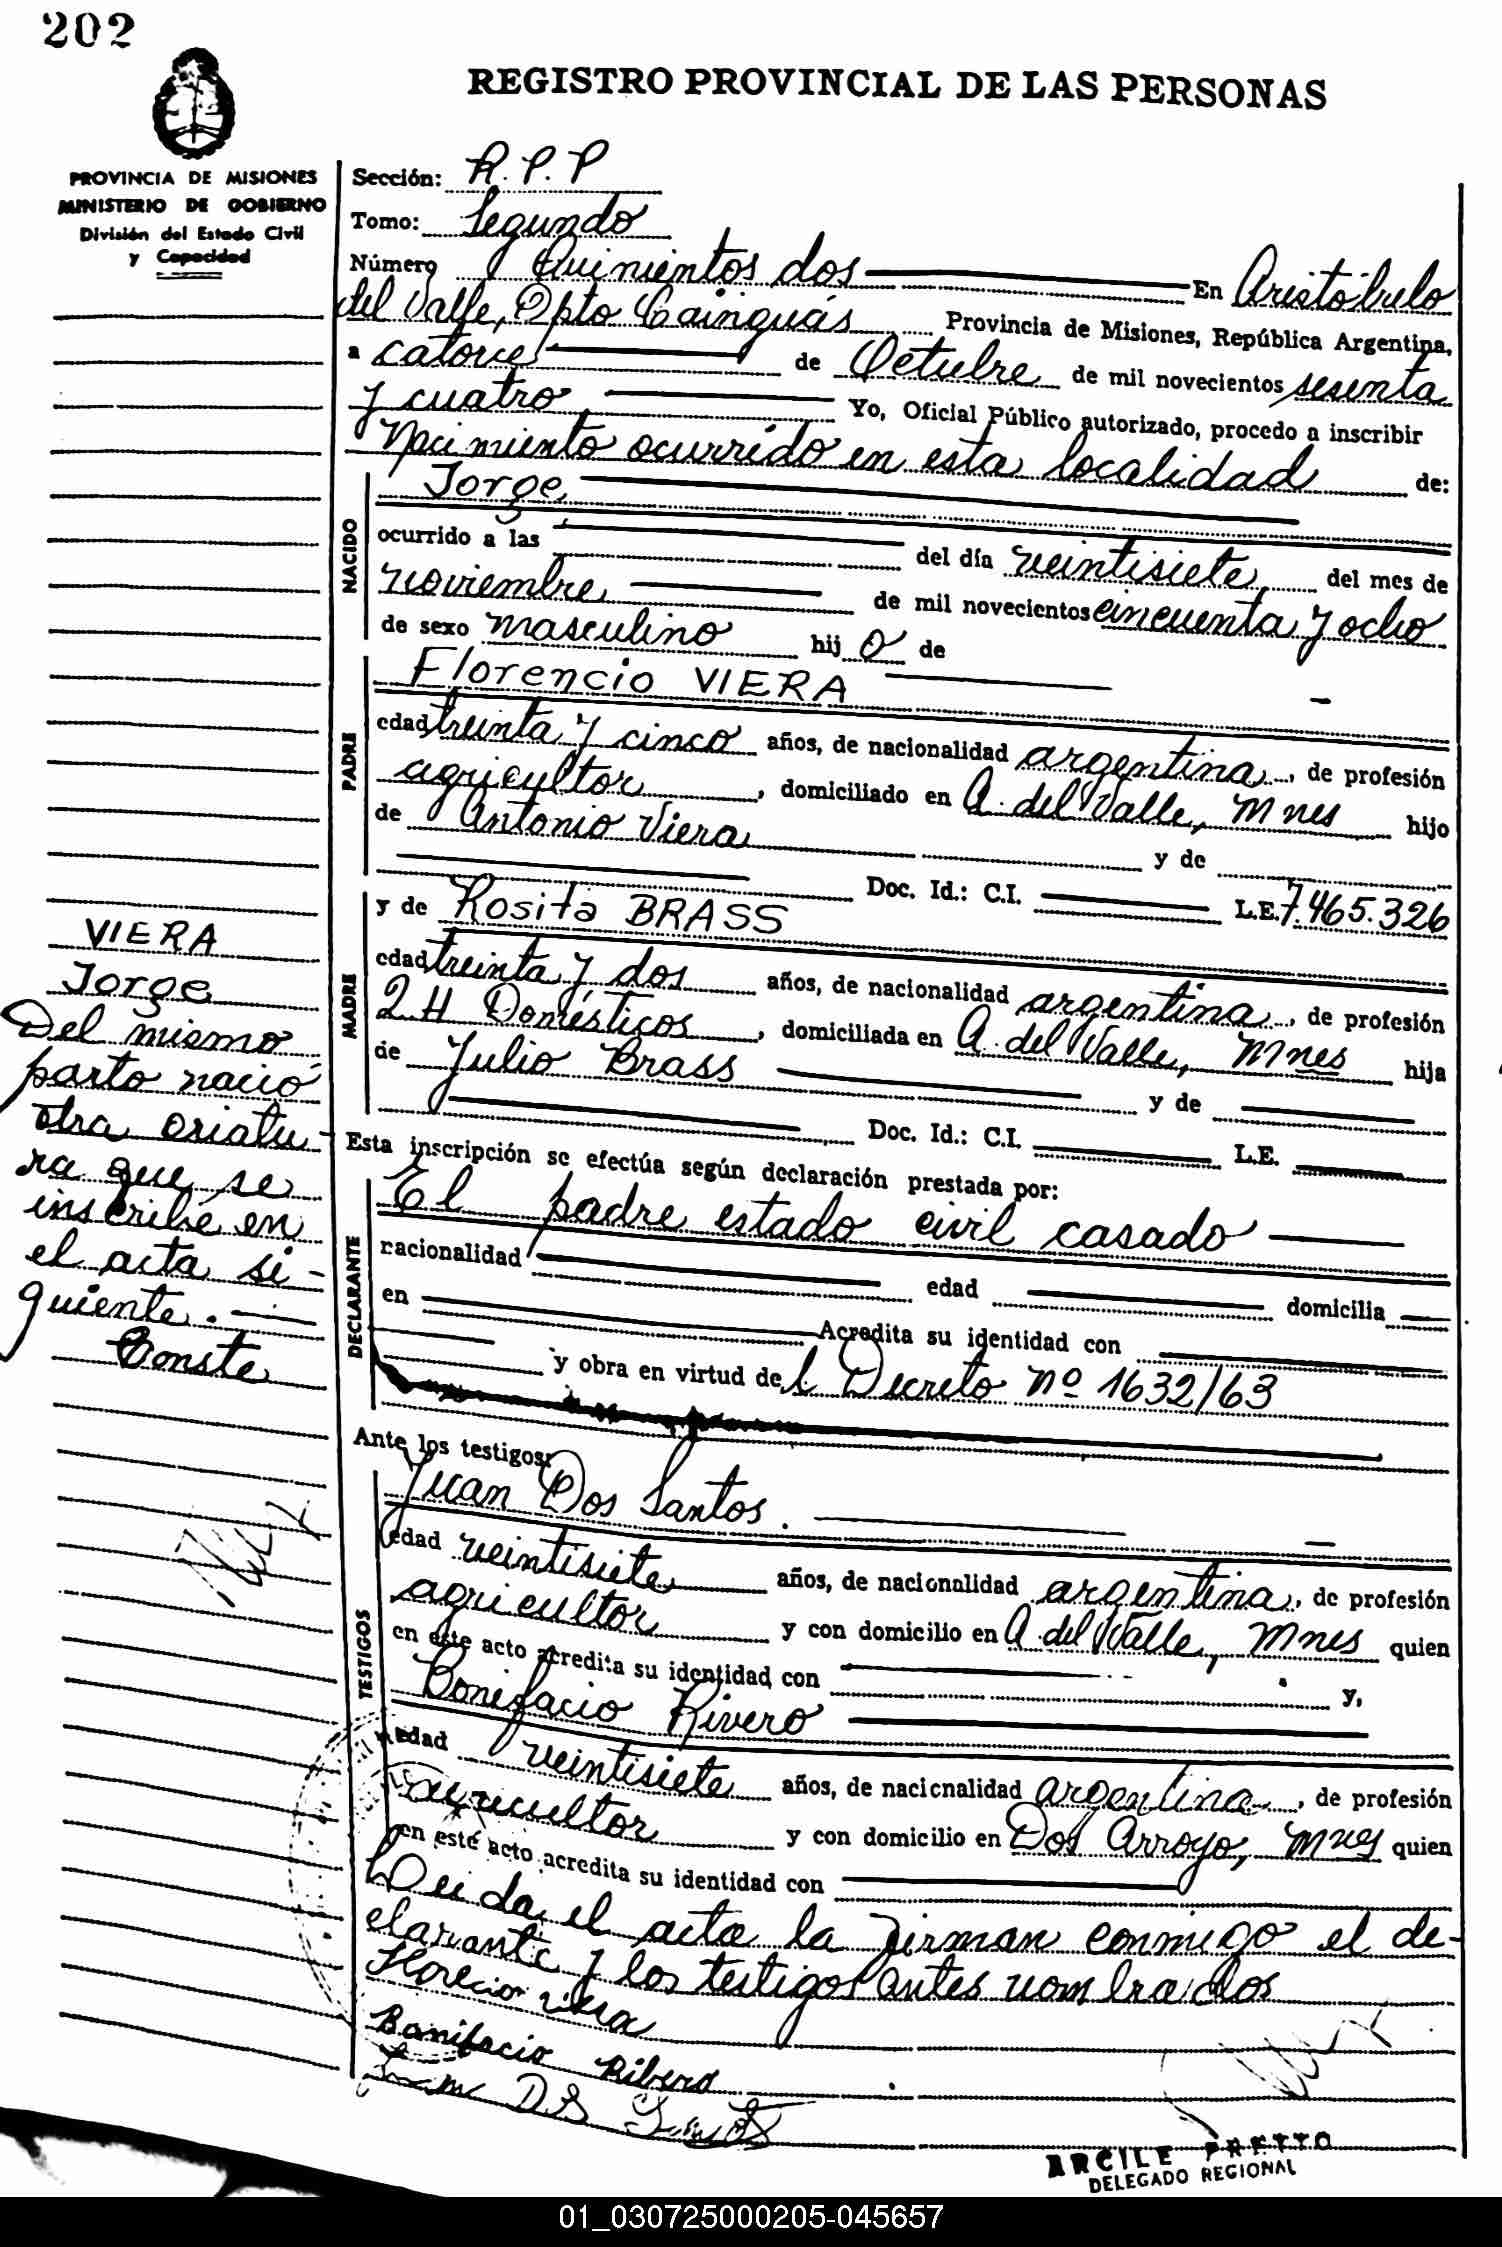 202
REGISTRO PROVINCIAL DE LAS PERSONAS
PROVINCIA DE MISIONES
MINISTERIO DE GOBIERNO
División del Estado Civil
y Capacidad
Sección: R.P.P
Tomo: Segundo
Número Quinientos dos En Aristóbulo
del Valle, Dpto Cainguás Provincia de Misiones, República Argentina,
a catorce de Octubre de mil novecientos sesenta
y cuatro Yo, Oficial Público autorizado, procedo a inscribir
Nacimiento ocurrido en esta localidad de:
NACIDO
Jorge
ocurrido a las del día veintisiete del mes de
noviembre de mil novecientos cincuenta y ocho
de sexo masculino hij o de
PADRE
Florencio VIERA
edad treinta y cinco años, de nacionalidad argentina, de profesión
agricultor, domiciliado en A. del Valle, Mnes hijo
de Antonio Viera y de
Doc. Id.: C.I. L.E. 7.465.326
MADRE
y de Rosita BRASS
edad treinta y dos años, de nacionalidad argentina, de profesión
2 H Domésticos, domiciliada en A. del Valle, Mnes hija
de Julio Brass y de
Doc. Id.: C.I. L.E.
Esta inscripción se efectúa según declaración prestada por:
DECLARANTE
El padre estado civil casado
nacionalidad edad domicilia
en Acredita su identidad con
y obra en virtud de l Decreto nº 1632/63
Ante los testigos:
TESTIGOS
Juan Dos Santos.
edad veintisiete años, de nacionalidad argentina, de profesión
agricultor y con domicilio en A. del Valle, Mnes quien
en este acto acredita su identidad con y,
Bonifacio Rivero
edad veintisiete años, de nacionalidad argentina, de profesión
agricultor y con domicilio en Dos Arroyo, Mnes quien
en este acto acredita su identidad con
Leida el acta la firman conmigo el de-
clarante y los testigos antes nombrados
Florecio Viera
Bonifacio Ribero
VIERA
Jorge
Del mismo
parto nació
otra criatu-
ra que se
inscribe en
el acta si-
guiente.
Conste
ARCILE PRETTO
DELEGADO REGIONAL
01_030725000205-045657